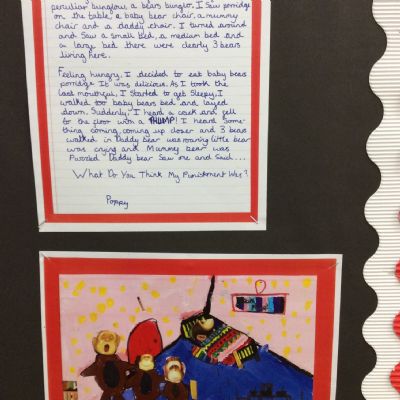 peculiar bunglow, a bears bunglo. I saw porridge
on the table, a baby bear chair, a mummy
chair and a daddy chair. I turned around
and saw a small bed, a median bed and
a large bed there were clearly 3 bears
living here.
Feeling hungry, I decided to eat baby bears
porridge. It was delicious. As I took the
last mouthful, I started to get sleepy, I
walked too baby bears bed and layed
down. Suddenly, I heard a crack and fell
to the floor with a THUMP! I heard some-
thing coming, coming up closer and 3 bears
walked in Daddy bear was roaring little bear
was crying and Mummy bear was
Daddy bear saw me and said...
What Do You Think My Punishment Was?
Poppy